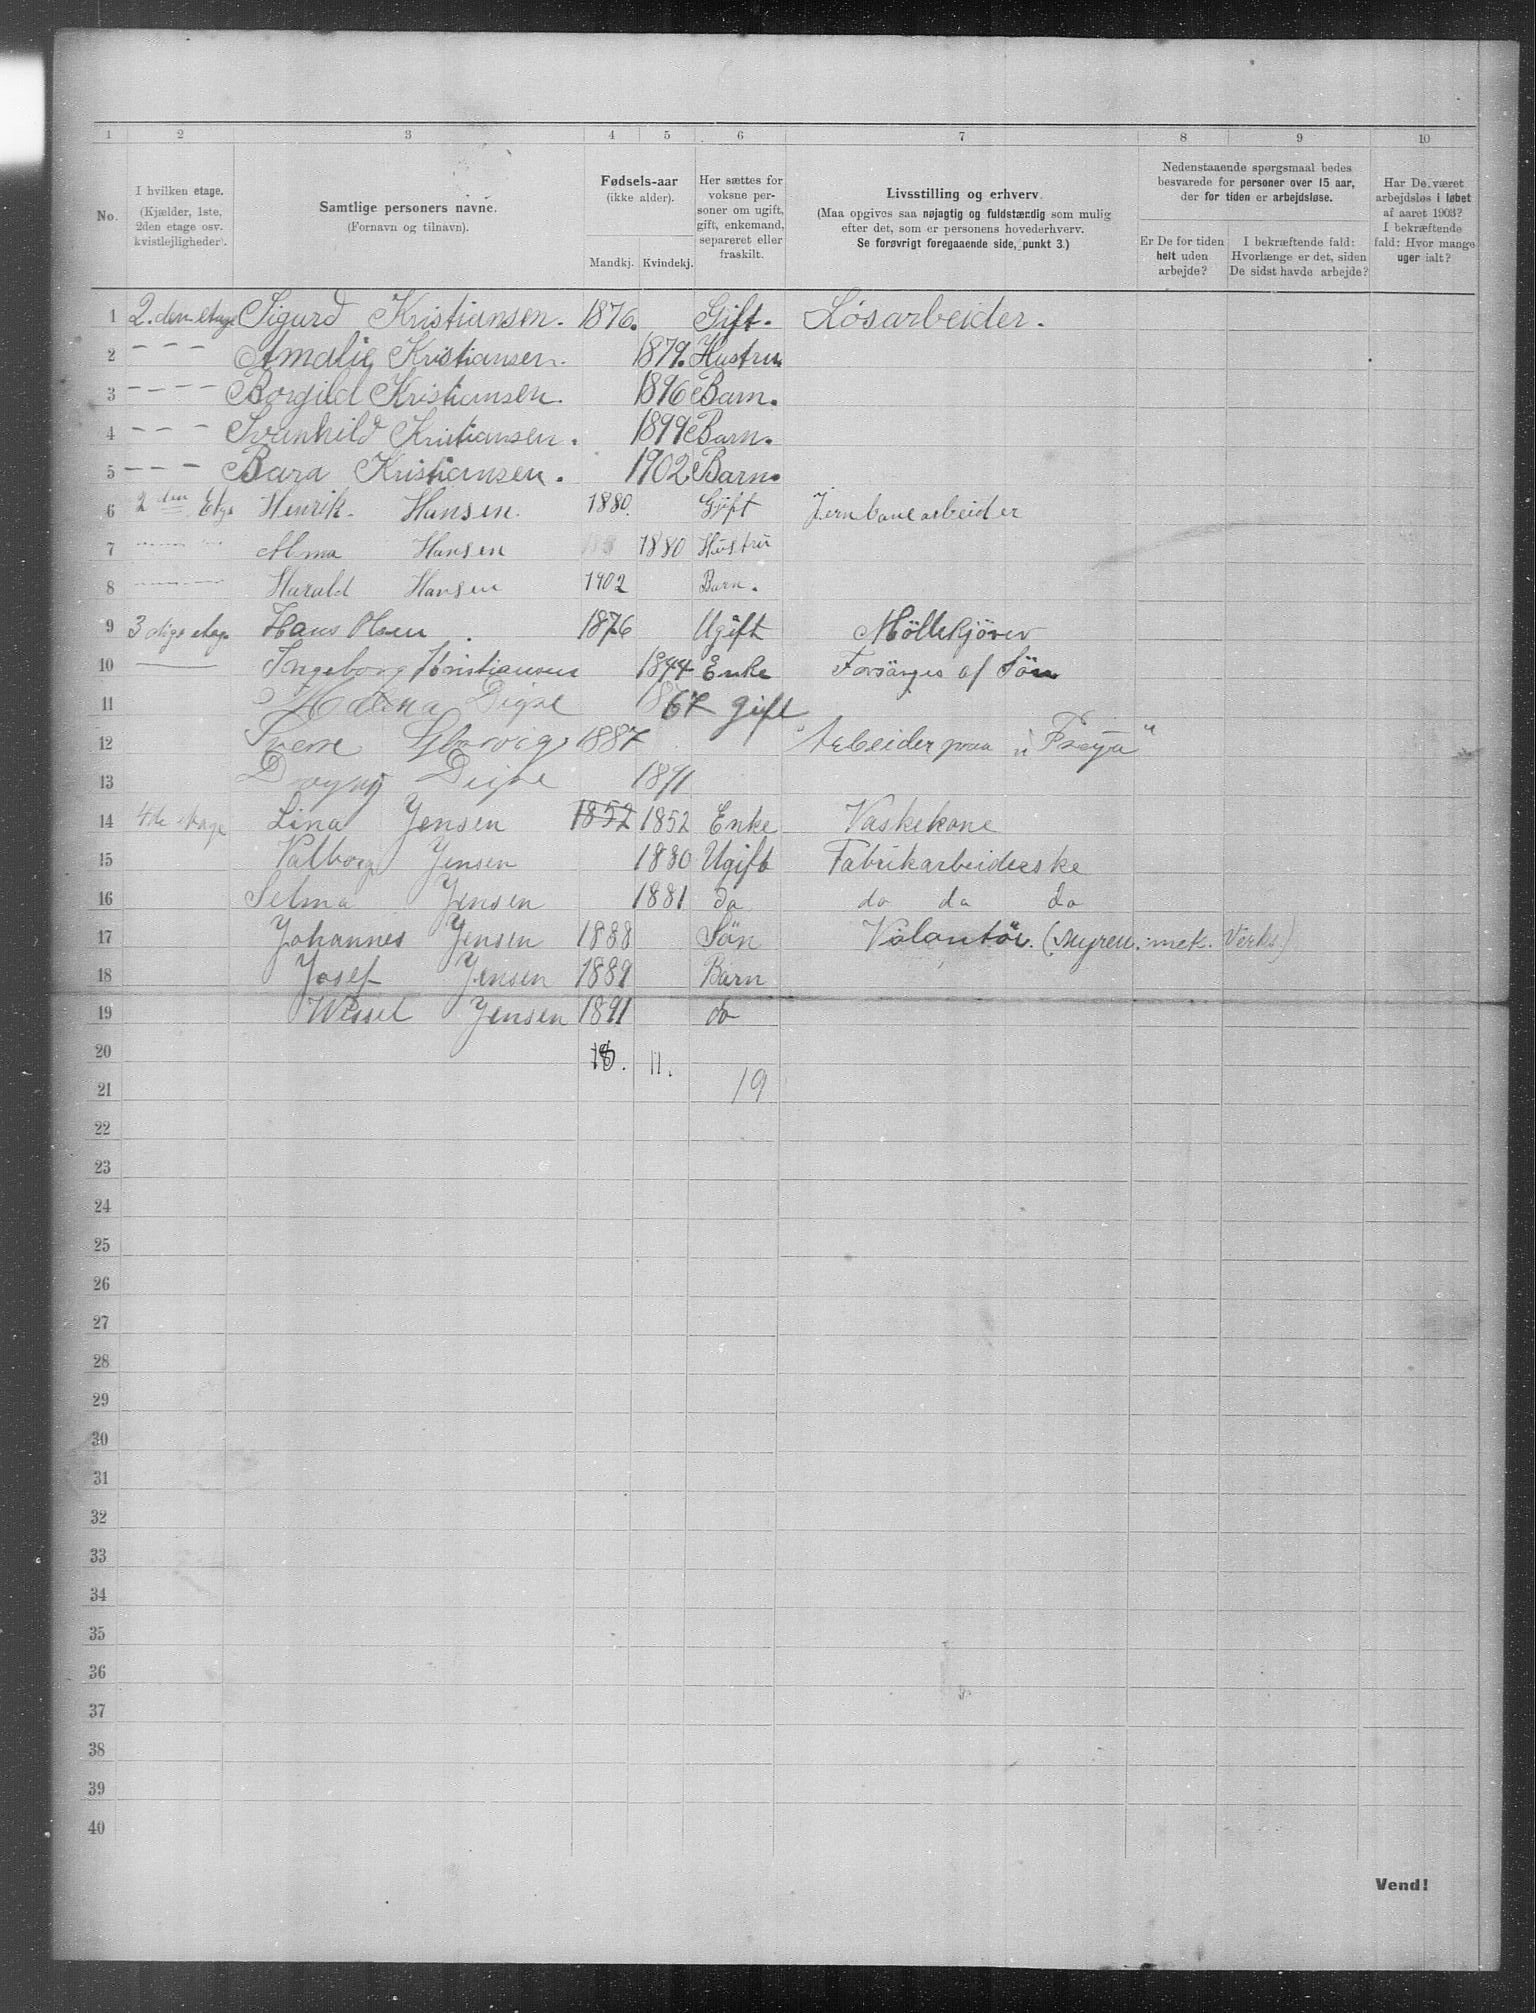 1 2 3 4 5 6 7 8 9 10
No.
I hvilken etage.
(Kjælder, 1ste,
2den etage osv.
kvistlejligheder).
Samtlige personers navne.
(Fornavn og tilnavn).
Fødsels-aar
(ikke alder).
Mandkj. Kvindekj.
Her sættes for
voksne per-
soner om ugift,
gift, enkemand,
separeret eller
fraskilt.
Livsstilling og erhverv.
(Maa opgives saa nøjagtig og fuldstændig som mulig
efter det, som er personens hovederhverv.
Se forøvrigt foregaaende side, punkt 3.)
Nedenstaaende spørgsmaal bedes
besvarede for personer over 15 aar,
der for tiden er arbejdsløse.
Er De for tiden
helt uden
arbejde?
I bekræftende fald:
Hvorlænge er det, siden
De sidst havde arbejde?
Har De været
arbejdsløs i løbet
af aaret 1903?
I bekræftende
fald: Hvor mange
uger ialt?
1 2.den etage Sigurd Kristiansen. 1876. Gift. Løsarbeider.
2 - - - Amalie Kristiansen. 1879. Hustru
3 - - - - Borgild Kristiansen. 1896 Barn.
4 - - - Svanhild Kristiansen. 1899 Barn.
5 - - - Bara Kristiansen. 1902 Barn.
6 2 den Etge Henrik Hansen. 1880. Gift Jernbanearbeider
7 Alma Hansen 1880 Hustru
8 Harald Hansen 1902 Barn.
9 3 etage Hans Olsen 1876 Ugift Möllekjörer
10 Ingeborg Kristiansen 1844 Enke Forsörges af Sön
11 1867 gift
12 Sverre 1887 Arbeider paa "Freya"
13 Dagny 1891
14 4de etage Lina Jensen 1852 1852 Enke Vaskekone
15 Valborg Jensen 1880 Ugift Fabrikarbeiderske
16 Selma Jensen 1881 do do do do
17 Johannes Jensen 1888 Sön Volontör. (Myren. mek. Verks)
18 Josef Jensen 1889 Barn
19 Wessel Jensen 1891 do
20 11.
21 19
22
23
24
25
26
27
28
29
30
31
32
33
34
35
36
37
38
39
40
Vend!